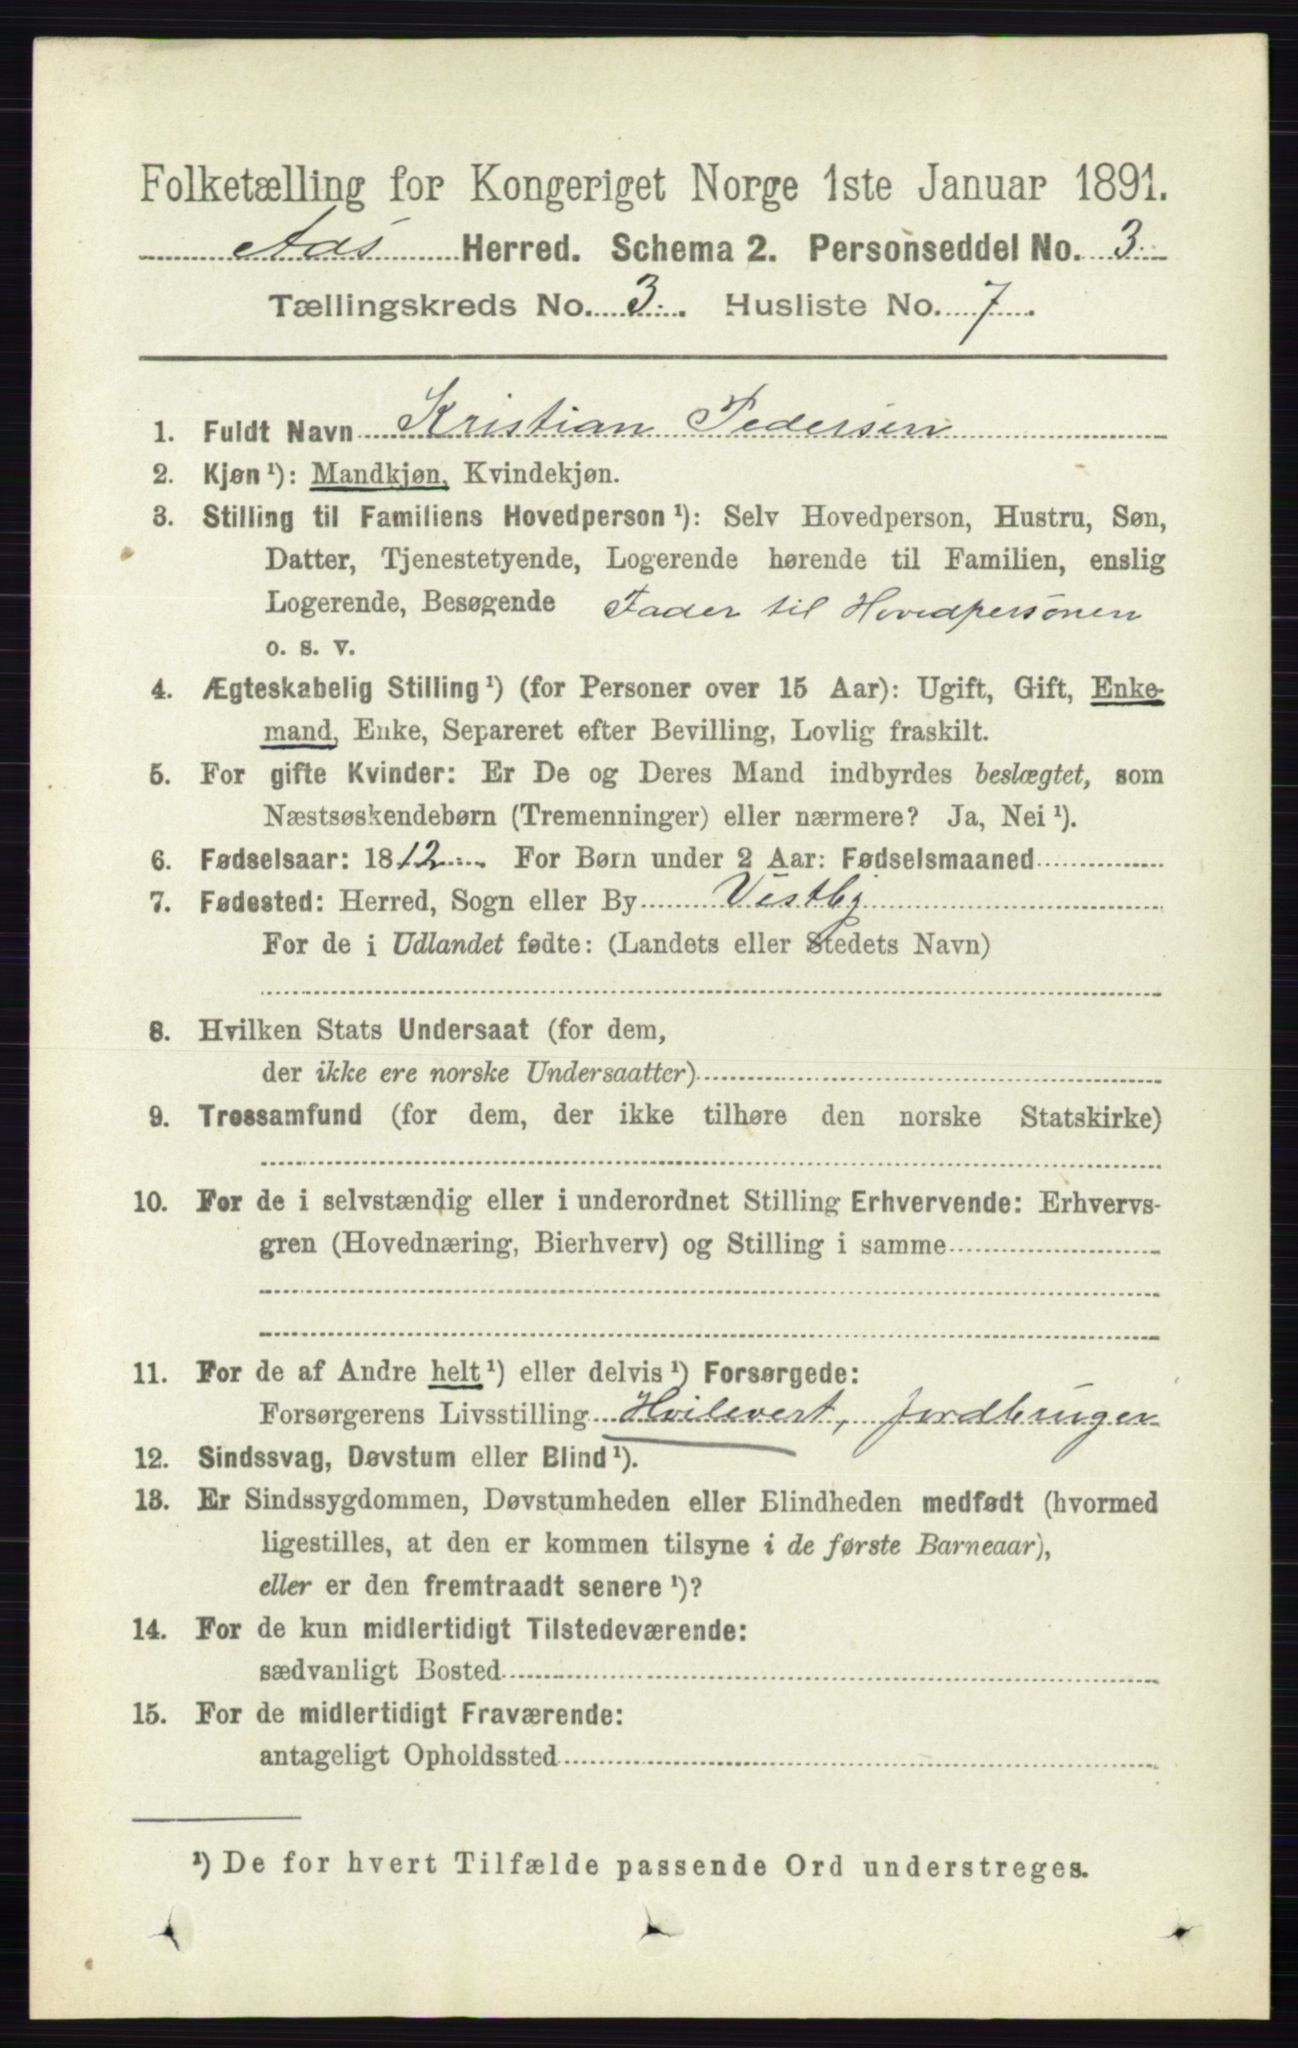 Folketælling for Kongeriget Norge 1ste Januar 1891.
Aas Herred. Schema 2. Personseddel No. 3
Tællingskreds No. 3. Husliste No. 7.
1. Fuldt Navn Kristian Pedersen
2. Kjøn ¹): Mandkjøn, Kvindekjøn.
3. Stilling til Familiens Hovedperson ¹): Selv Hovedperson, Hustru, Søn,
Datter, Tjenestetyende, Logerende hørende til Familien, enslig
Logerende, Besøgende Fader til Hovedpersonen
o. s. v.
4. Ægteskabelig Stilling ¹) (for Personer over 15 Aar): Ugift, Gift, Enke-
mand, Enke, Separeret efter Bevilling, Lovlig fraskilt.
5. For gifte Kvinder: Er De og Deres Mand indbyrdes beslægtet, som
Næstsøskendebørn (Tremenninger) eller nærmere? Ja, Nei ¹).
6. Fødselsaar: 1812 For Børn under 2 Aar: Fødselsmaaned
7. Fødested: Herred, Sogn eller By Vestby
For de i Udlandet fødte: (Landets eller Stedets Navn)
8. Hvilken Stats Undersaat (for dem,
der ikke ere norske Undersaatter)
9. Trossamfund (for dem, der ikke tilhøre den norske Statskirke)
10. For de i selvstændig eller i underordnet Stilling Erhvervende: Erhvervs-
gren (Hovednæring, Bierhverv) og Stilling i samme
11. For de af Andre helt ¹) eller delvis ¹) Forsørgede:
Forsørgerens Livsstilling Hvilevert, Jordbruger
12. Sindssvag, Døvstum eller Blind ¹).
13. Er Sindssygdommen, Døvstumheden eller Blindheden medfødt (hvormed
ligestilles, at den er kommen tilsyne i de første Barneaar),
eller er den fremtraadt senere ¹)?
14. For de kun midlertidigt Tilstedeværende:
sædvanligt Bosted
15. For de midlertidigt Fraværende:
antageligt Opholdssted
¹) De for hvert Tilfælde passende Ord understreges.